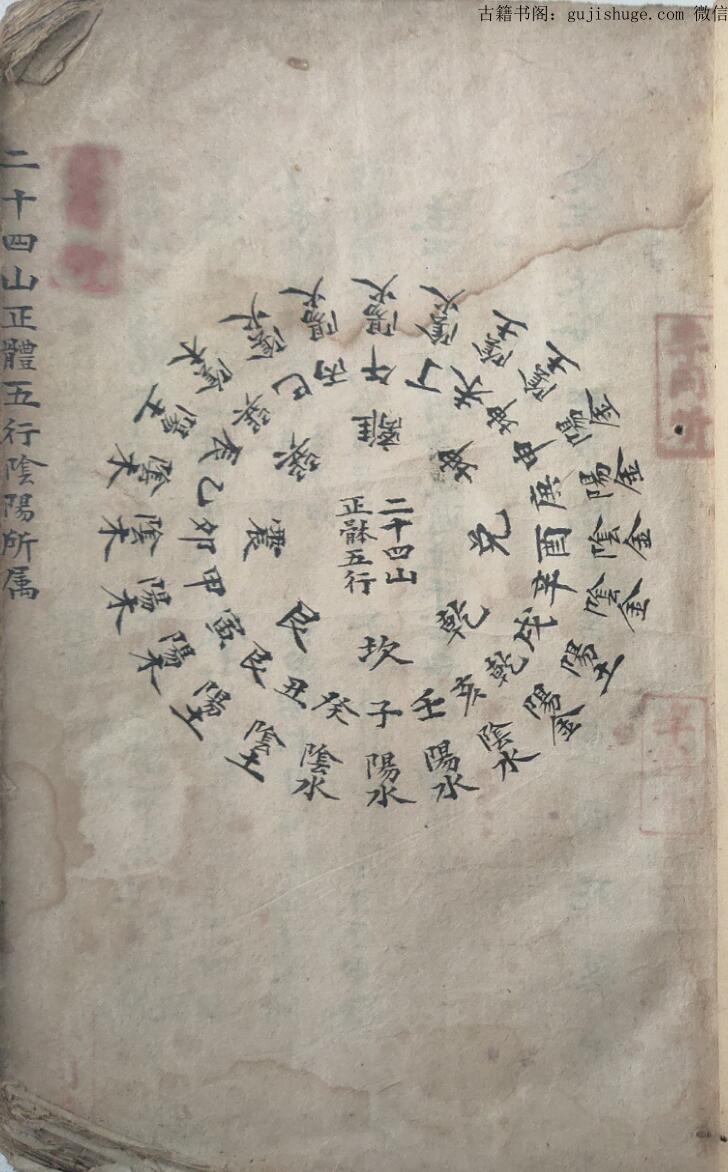 古籍书阁：gujishuge.com 微信
二十四山正體五行陰陽所属
二十四山
正骵五行
離
坤
兑
乾
坎
艮
震
巽
午 陽火
丁 陰火
未 陰土
坤 陰土
申 陽金
庚 陽金
酉 陰金
辛 陰金
戌 陽土
乾 陽金
亥 陰水
壬 陽水
子 陽水
癸 陰水
丑 陰土
艮 陽土
寅 陽木
甲 陽木
卯 陰木
乙 陰木
辰 陽土
巽 陰木
巳 陰火
丙 陽火